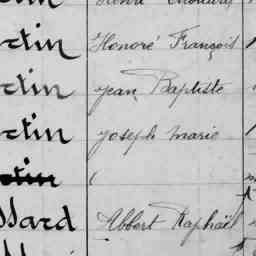 ctin Honoré François
ctin Jean Baptiste
ctin Joseph Marie
ctin (
ssard Albert Raphaël